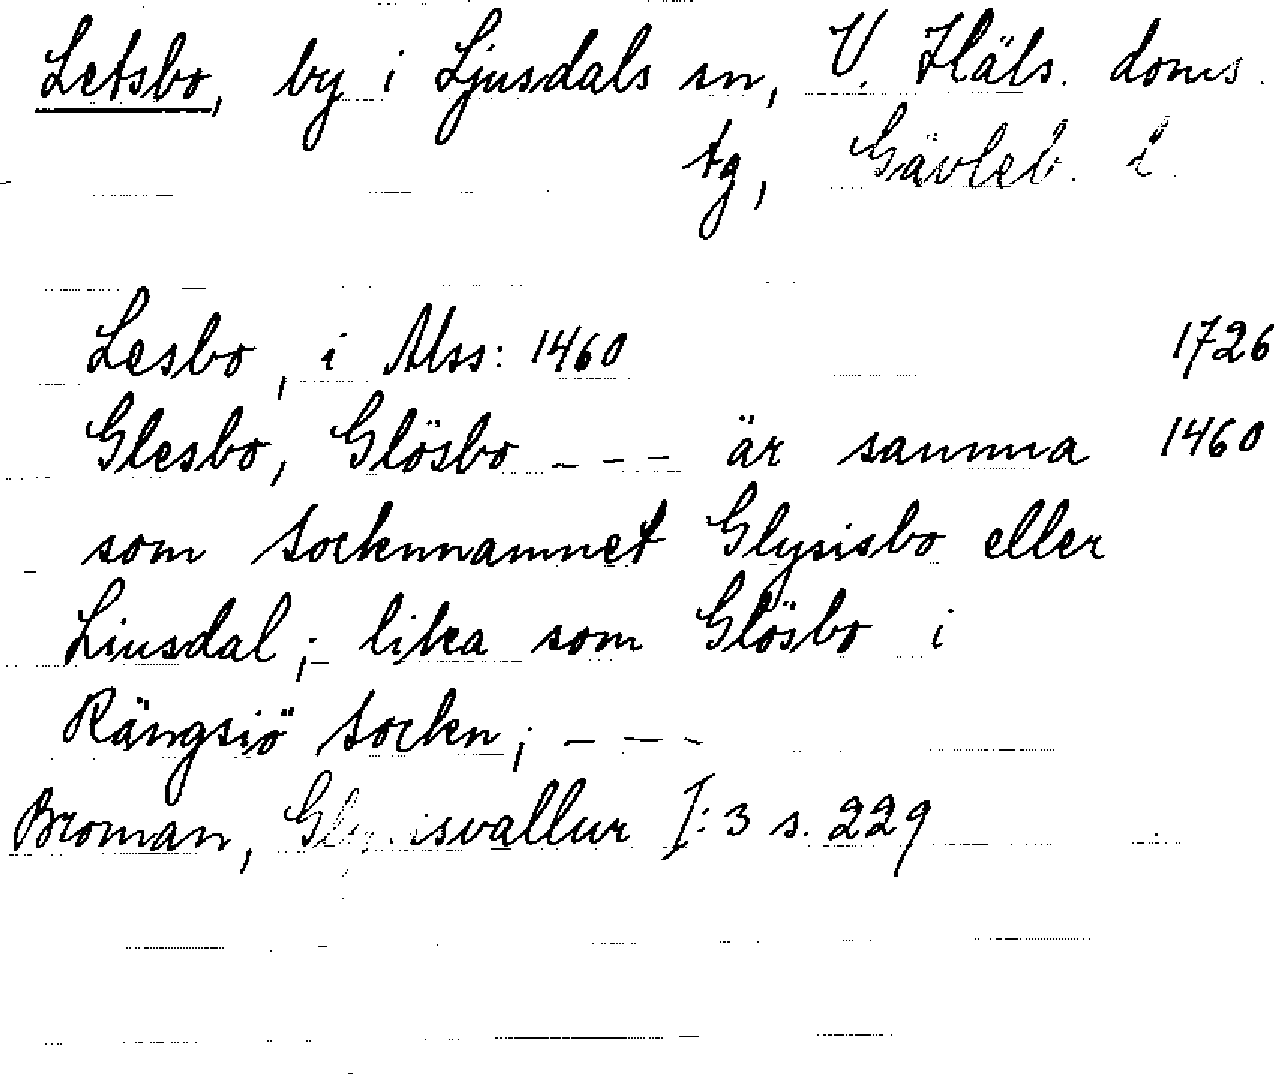 Letsbo, by i Ljusdals sn, V. Häls. doms.
tg, Gävleb. l.
Lesbo, i Mss: 1460 1726
Glesbo, Glösbo - - - är samma 1460
som Socknnamnet Glysisbo eller
Liusdal; lika som Glösbo i
Rängsiö Sockn; - - -
Broman, Glysisvallur I:3 s. 229